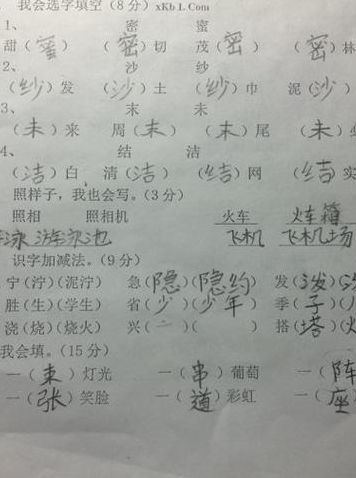 我会选字填空(8分)xKb 1.Com
1、 密 蜜
甜(蜜) (密)切 茂(密) (密)林
2、 沙 纱
(纱)发 (沙)土 (纱)巾 泥(沙)
3、 末 未
(未)来 周(末) (末)尾 (未)
4、 结 洁
(洁)白 清(洁) (结)网 (结)实
照样子，我也会写。(3分)
照相 照相机 火车 火车箱
泳 游泳池 飞机 飞机场
识字加减法。(9分)
宁(泞)(泥泞) 急(隐)(隐约) 发(泼)
胜(生)(学生) 省(少)(少年) 季(子)
浇(烧)(烧火) 兴( )( ) 搭(塔)(火
我会填。(15分)
一(束)灯光 一(串)葡萄 一(阵
一(张)笑脸 一(道)彩虹 一(座